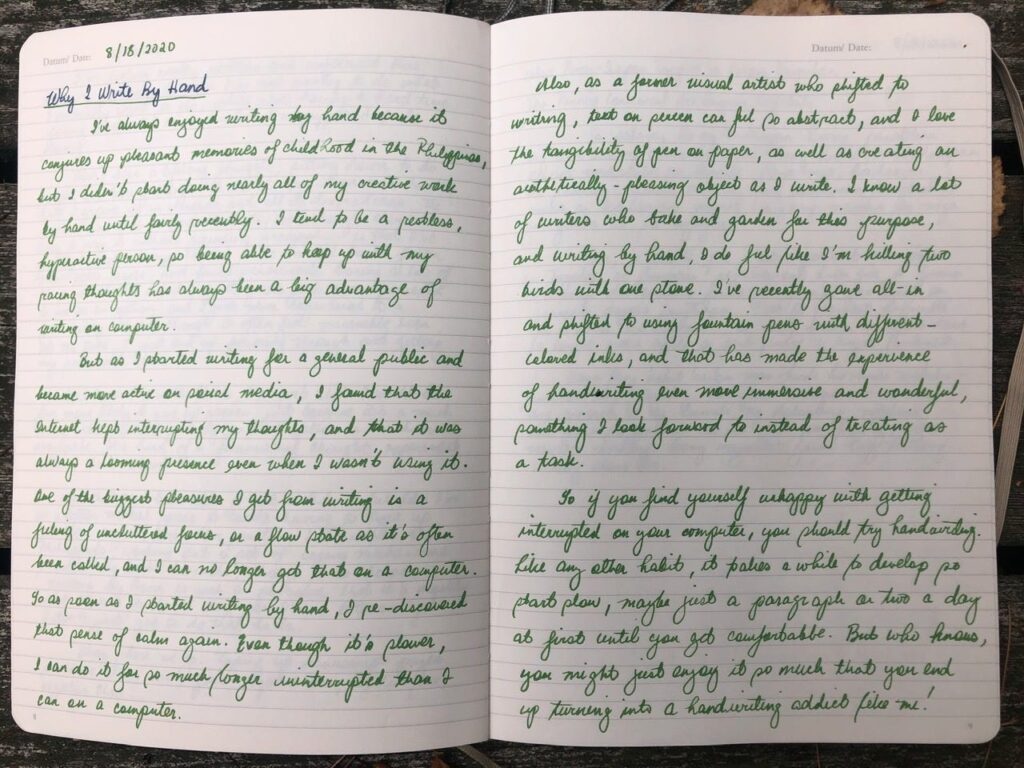 Datum/ Date: 8/18/2020
Why I Write By Hand
I've always enjoyed writing by hand because it
conjures up pleasant memories of childhood in the Philippines,
but I didn't start doing nearly all of my creative work
by hand until fairly recently. I tend to be a restless,
hyperactive person, so being able to keep up with my
racing thoughts has always been a big advantage of
writing on computer.
But as I started writing for a general public and
became more active on social media, I found that the
Internet kept interrupting my thoughts, and that it was
always a looming presence even when I wasn't using it.
One of the biggest pleasures I get from writing is a
feeling of uncluttered focus, or a flow state as it's often
been called, and I can no longer get that on a computer.
So as soon as I started writing by hand, I re-discovered
that sense of calm again. Even though it's slower,
I can do it for so much longer uninterrupted than I
can on a computer.
Datum/ Date:
Also, as a former visual artist who shifted to
writing, text on screen can feel so abstract, and I love
the tangibility of pen on paper, as well as creating an
aesthetically-pleasing object as I write. I know a lot
of writers who bake and garden for this purpose,
and writing by hand, I do feel like I'm killing two
birds with one stone. I've recently gone all-in
and shifted to using fountain pens with different-
colored inks, and that has made the experience
of handwriting even more immersive and wonderful,
something I look forward to instead of treating as
a task.
So if you find yourself unhappy with getting
interrupted on your computer, you should try handwriting.
Like any other habit, it takes a while to develop so
start slow, maybe just a paragraph or two a day
at first until you get comfortable. But who knows,
you might just enjoy it so much that you end
up turning into a handwriting addict like me!